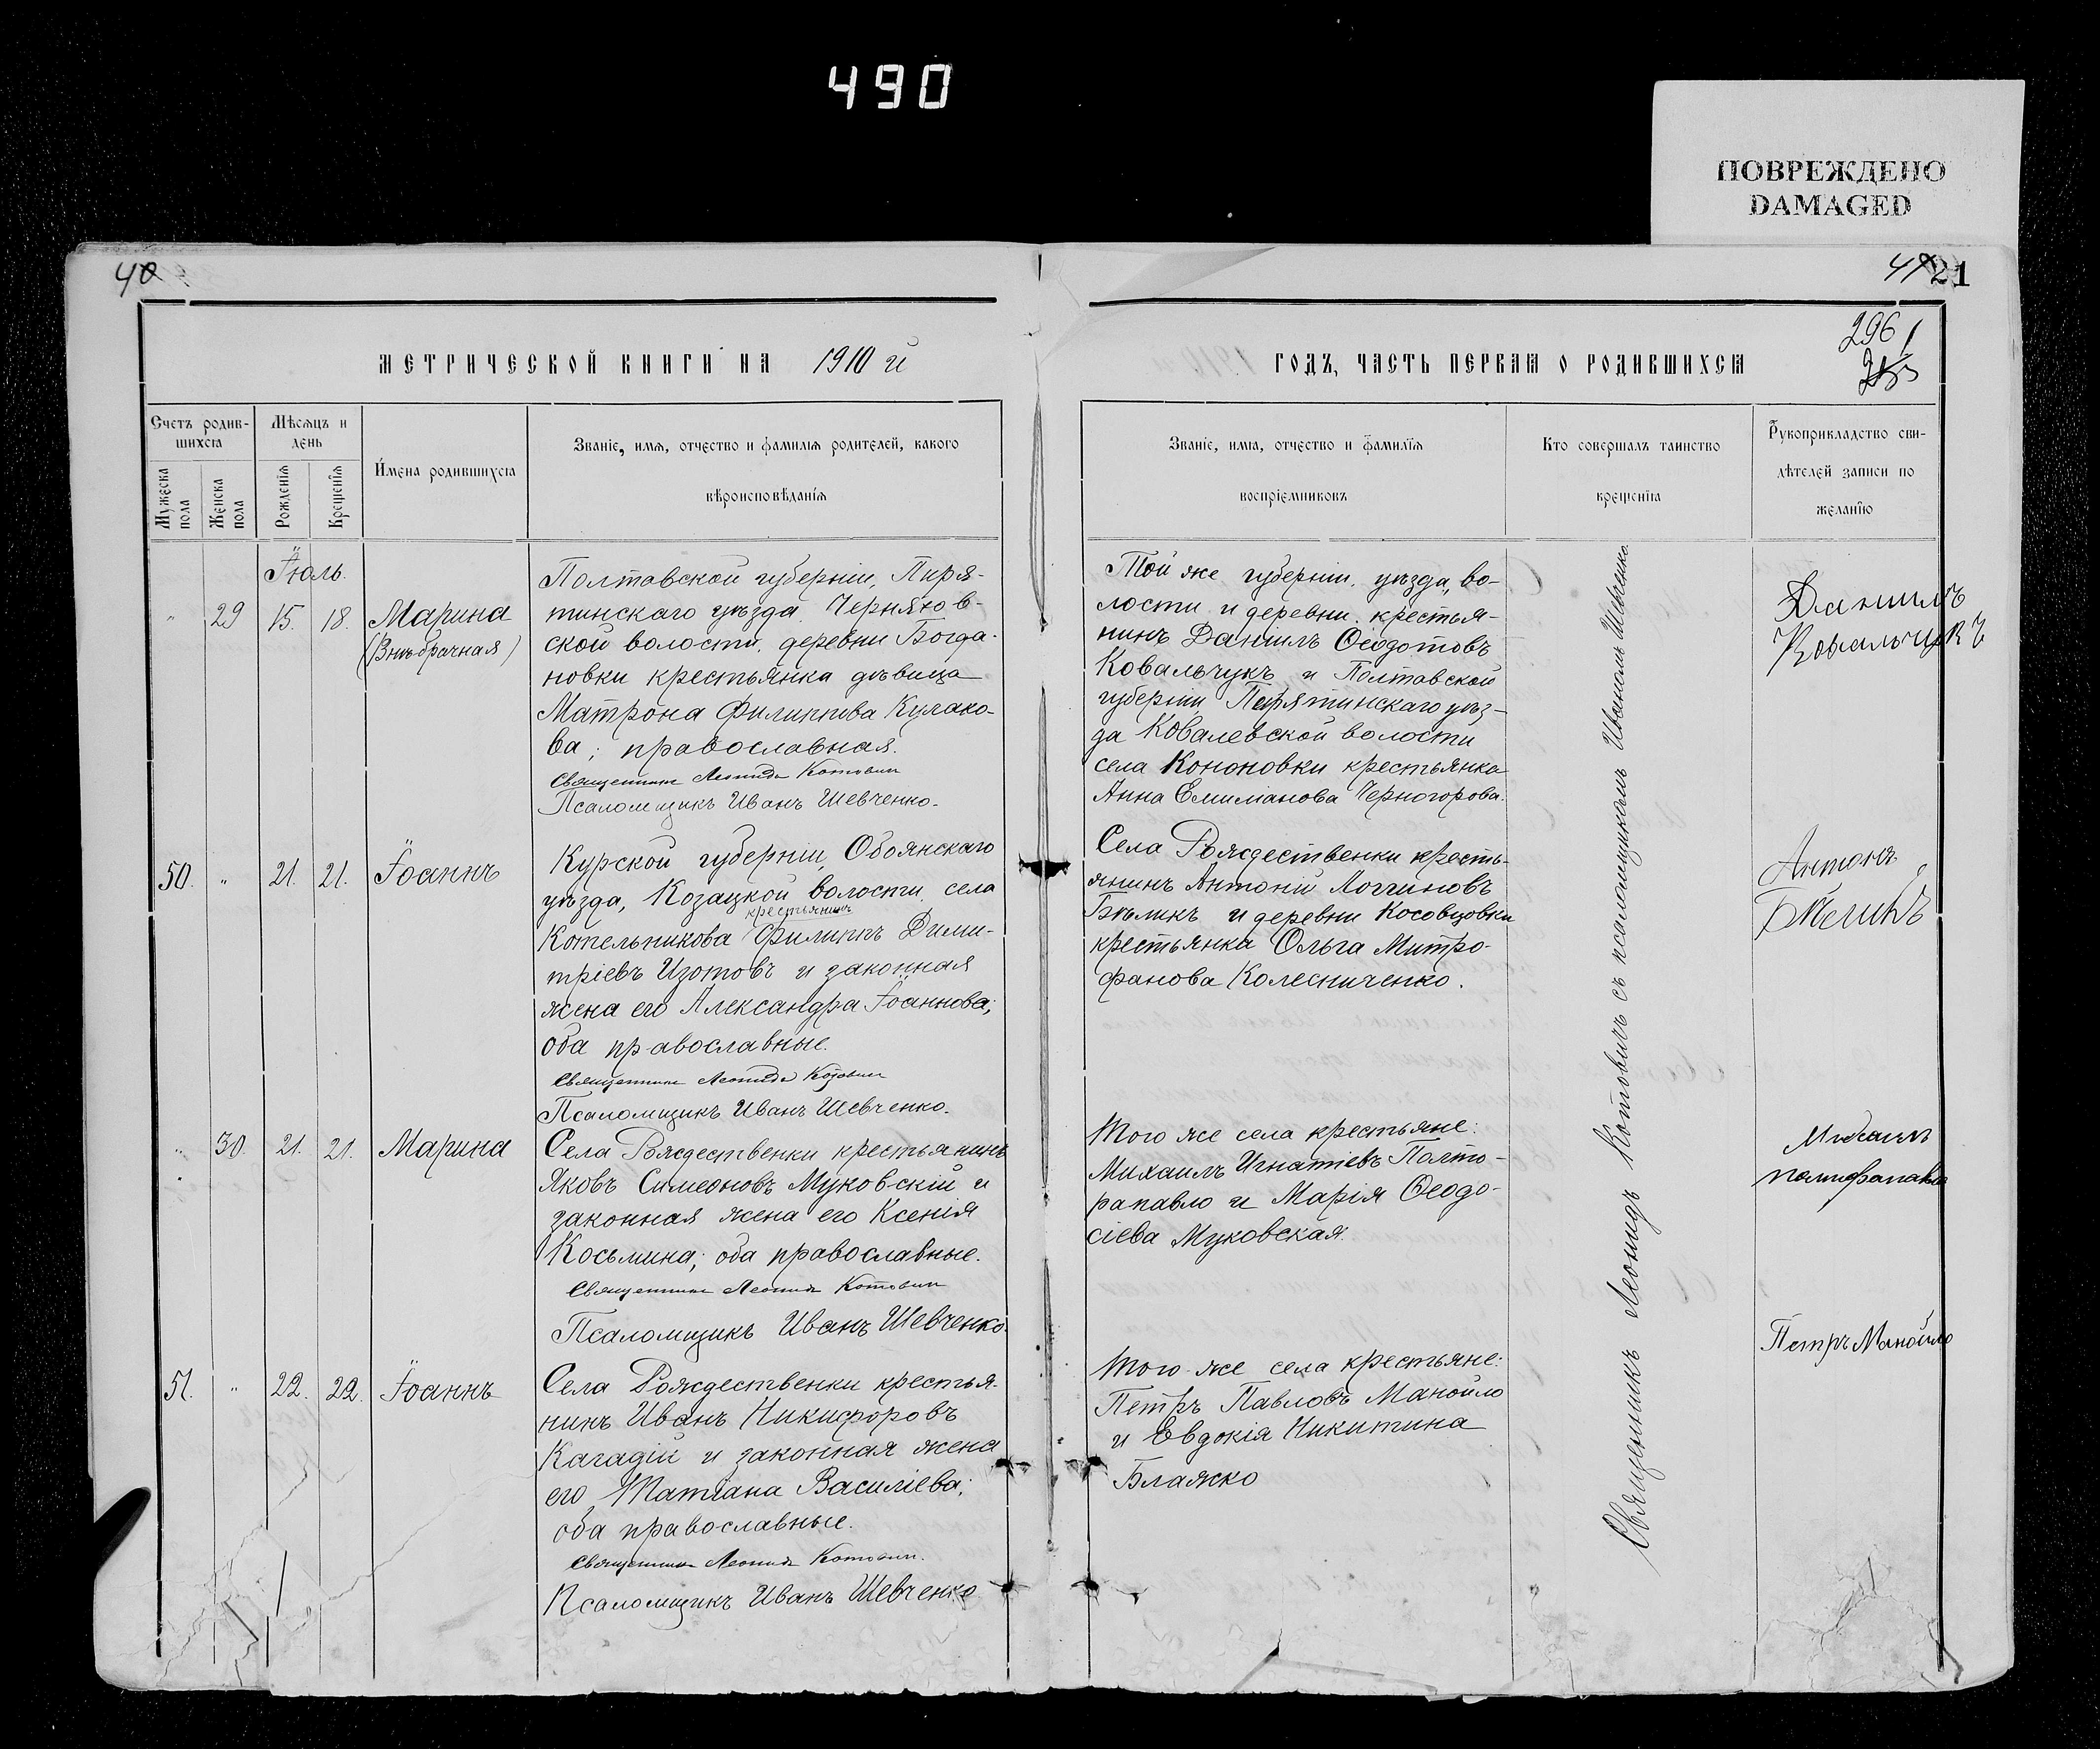 490
ПОВРЕЖДЕНО
DAMAGED
40
21
296
МЕТРИЧЕСКОЙ КНИГИ НА 1910 й
ГОДЪ, ЧАСТЬ ПЕРВАЯ О РОДИВШИХСЯ
Счетъ родив-
шихся
Мѣсяцъ и
день
Имена родившихся
Званіе, имя, отчество и фамилія родителей, какого
вѣроисповѣданія
Мужеска пола
Женска пола
Рожденія
Крещенія
Званіе, имя, отчество и фамилія
воспріемниковъ
Кто совершалъ таинство
крещенія
Рукоприкладство сви-
дѣтелей записи по
желанію
Іюль.
" 29 15. 18. Марина
(Внѣбрачная)
Полтавской губерніи, Пиря-
тинскаго уѣзда Черняхов-
ской волости, деревни Богда-
новки крестьянка дѣвица
Матрона Филиппова Кулако-
ва; православная.
Священникъ Леонидъ Котович
Псаломщикъ Иванъ Шевченко.
Той же губерніи, уѣзда, во-
лости и деревни крестья-
нинъ Даніилъ Ѳеодотовъ
Ковальчукъ и Полтавской
губерніи Пирятинскаго уѣз-
да Ковалевской волости
села Кононовки крестьянка
Анна Емиліанова Черногорова.
Данилъ
Ковальчукъ
50. " 21. 21. Іоаннъ
Курской губерніи, Обоянскаго
уѣзда, Козацкой волости, села
крестьянинъ
Котельникова Филиппъ Дими-
тріевъ Изотовъ и законная
жена его Александра Іоаннова;
оба православные.
Священникъ Леонидъ Котович
Псаломщикъ Иванъ Шевченко.
Села Рождественки кресть-
янинъ Антоній Логгиновъ
Бѣликъ и деревни Косовцовки
крестьянка Ольга Митро-
фанова Колесниченко.
Антонъ
Бѣликъ
" 30. 21. 21. Марина
Села Рождественки крестьянинъ
Яковъ Симеоновъ Муковскій и
законная жена его Ксенія
Косьмина; оба православные.
Священникъ Леонидъ Котович
Псаломщикъ Иванъ Шевченко.
Того же села крестьяне:
Михаилъ Игнатіевъ Полто-
рапавло и Марія Ѳеодо-
сіева Муковская.
51. " 22. 22. Іоаннъ
Села Рождественки крестья-
нинъ Иванъ Никифоровъ
Кагадій и законная жена
его Татіана Василіева;
оба православные.
Священникъ Леонидъ Котович.
Псаломщикъ Иванъ Шевченко
Того же села крестьяне:
Петръ Павловъ Манойло
и Евдокія Никитина
Блажко
Петръ Манойло
Священникъ Леонидъ Котовичъ съ псаломщикомъ Иваномъ Шевченко.